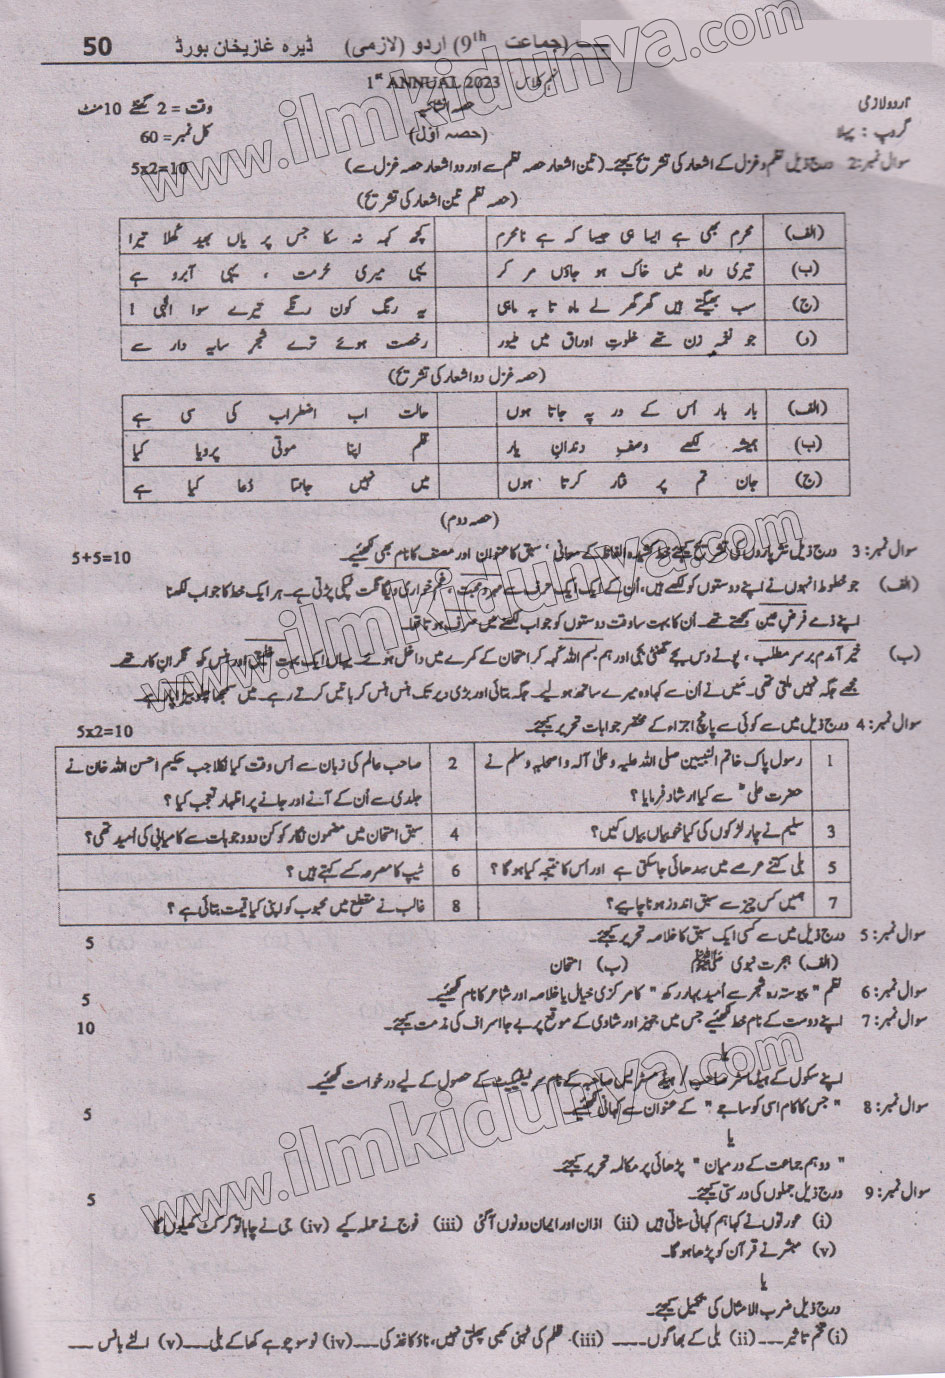 50 ڈیرہ غازیخان بورڈ (جماعت 9th) اردو (لازمی)
1st ANNUAL 2023
اردو لازمی حصہ انشائیہ وقت = 2 گھنٹے 10 منٹ
گروپ : پہلا (حصہ اوّل) کل نمبر = 60
سوال نمبر: 2 درج ذیل نظم و غزل کے اشعار کی تشریح کیجئے۔ (تین اشعار حصہ نظم سے اور دو اشعار حصہ غزل سے) 5x2=10
(حصہ نظم تین اشعار کی تشریح)
(الف) محرم بھی ہے ایسا ہی جیسا کہ ہے نامحرم کچھ کہہ نہ سکا جس پر یاں بھید کُھلا تیرا
(ب) تیری راہ میں خاک ہو جاؤں مر کر یہی میری حُرمت ، یہی آبرو ہے
(ج) سب بھیگتے ہیں گھر گھر لے ماہ تا بہ ماہی یہ رنگ کون رنگے تیرے سوا الٰہی !
(د) جو نغمہ زن تھے خلوتِ اوراق میں طیور رخصت ہوئے ترے شجر سایہ دار سے
(حصہ غزل دو اشعار کی تشریح)
(الف) بار بار اُس کے در پہ جاتا ہوں حالت اب اضطراب کی سی ہے
(ب) ہمیشہ لکھے وصفِ دندانِ یار قلم اپنا موتی پرویا کیا
(ج) جان تم پر نثار کرتا ہوں میں نہیں جانتا دُعا کیا ہے
(حصہ دوم)
سوال نمبر: 3 درج ذیل نثر پاروں کی تشریح کیجئے خط کشیدہ الفاظ کے معانی ' سبق کا عنوان اور مصنف کا نام بھی لکھئیے۔ 5+5=10
(الف) جو خطوط انہوں نے اپنے دوستوں کو لکھے ہیں، اُن کے ایک ایک حرف سے مہر و محبت، غم خواری و یگانگت ٹپکی پڑتی ہے۔ ہر ایک خط کا جواب لکھنا
اپنے ذمے فرضِ عین سمجھتے تھے۔ اُن کا بہت سا وقت دوستوں کو جواب لکھنے میں صرف ہوتا تھا۔
(ب) خیر آمدم بر سر مطلب، پونے دس بجے گھنٹی بجی اور ہم بسم اللہ کہہ کر امتحان کے کمرے میں داخل ہوئے۔ یہاں ایک بہت خلیق اور ہنس مکھ نگران کار تھے۔
مجھے جگہ نہیں ملتی تھی۔ میں نے اُن سے کہا وہ میرے ساتھ ہو لیے۔ جگہ بتائی اور بڑی دیر تک ہنس ہنس کر باتیں کرتے رہے۔ میں سمجھا چلو بیڑا پار ہے۔
سوال نمبر: 4 درج ذیل میں سے کوئی سے پانچ اجزاء کے مختصر جوابات تحریر کیجئے۔ 5x2=10
1 رسول پاک خاتم النبیین صلی اللہ علیہ و علیٰ آلہ و اصحابہ وسلم نے 2 صاحب عالم کی زبان سے اُس وقت کیا نکلا جب حکیم احسن اللہ خان نے
حضرت علیؓ سے کیا ارشاد فرمایا ؟ جلدی سے اُن کے آنے اور جانے پر اظہار تعجب کیا ؟
3 سلیم نے چار لڑکوں کی کیا خوبیاں بیاں کیں؟ 4 سبق امتحان میں مضمون نگار کو کن دو وجوہات سے کامیابی کی اُمید تھی؟
5 بلی کتنے عرصے میں سدھائی جا سکتی ہے اور اُس کا نتیجہ کیا ہو گا ؟ 6 ٹیپ کا مصرعہ کسے کہتے ہیں ؟
7 ہمیں کس چیز سے سبق اندوز ہونا چاہیے؟ 8 غالب نے مقطع میں محبوب کو اپنی کیا قیمت بتائی ہے ؟
سوال نمبر: 5 درج ذیل میں سے کسی ایک سبق کا خلاصہ تحریر کیجئے۔ 5
(الف) ہجرت نبوی ﷺ (ب) امتحان
سوال نمبر: 6 نظم " پیوستہ رہ شجر سے اُمید بہار رکھ " کا مرکزی خیال یا خلاصہ اور شاعر کا نام لکھئیے۔ 5
سوال نمبر: 7 اپنے دوست کے نام خط لکھئیے جس میں جہیز اور شادی کے موقع پر بے جا اسراف کی مذمت کیجئے۔ 10
یا
اپنے سکول کے ہیڈ ماسٹر صاحب / ہیڈ مسٹریس صاحبہ کے نام سرٹیفکیٹ کے حصول کے لیے درخواست لکھئیے۔
سوال نمبر: 8 " جس کا کام اسی کو ساجے " کے عنوان سے کہانی لکھئیے۔ 5
یا
" دو ہم جماعت کے درمیان " پڑھائی پر مکالمہ تحریر کیجئے۔
سوال نمبر: 9 درج ذیل جملوں کی درستی کیجئے۔ 5
(i) عورتوں نے کہا ہم کہانی سناتی ہیں (ii) اذان اور ایمان دونوں آگئی (iii) فوج نے حملہ کیے (iv) جی نے چاہا تو کرکٹ کھیلوں گا
(v) مبشر نے قرآن کو پڑھا ہو گا۔
یا
درج ذیل ضرب الامثال کی تکمیل کیجئے۔
(i) تخم تاثیر ---- (ii) بلی کے بھاگوں ---- (iii) ظلم کی ٹہنی کبھی پھلتی نہیں، ناؤ کاغذ کی ---- (iv) نو سو چوہے کھا کے بلی ---- (v) الٹے بانس ----
www.ilmkidunya.com
www.ilmkidunya.com
www.ilmkidunya.com